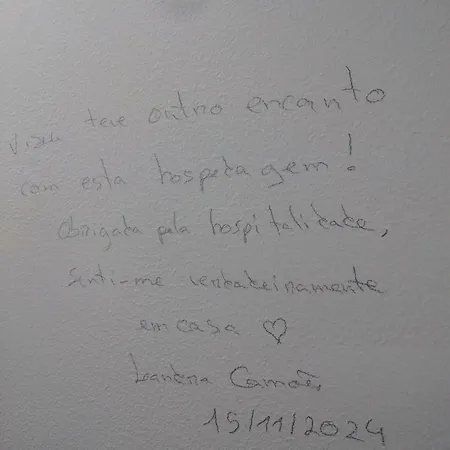 Viseu teve outro encanto
com esta hospedagem!
Obrigada pela hospitalidade,
Senti-me verdadeiramente
em casa ♡
Camões
15/11/2024